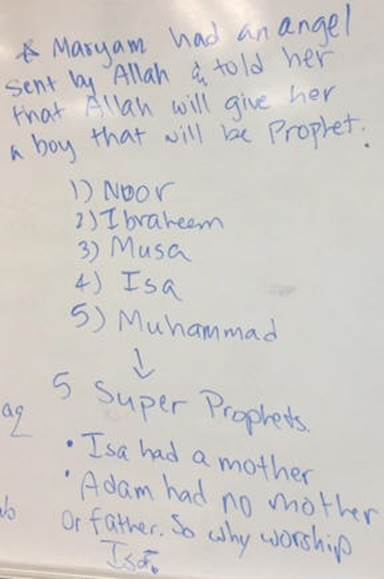 & Maryam had an angel
sent by Allah & told her
that Allah will give her
a boy that will be Prophet.
1) Noor
2) Ibraheem
3) Musa
4) Isa
5) Muhammad
↓
5 Super Prophets.
• Isa had a mother
• Adam had no mother
or father. So why worship
Isa?